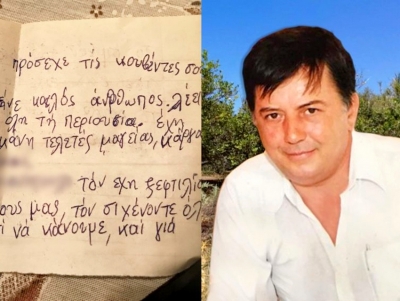 πρόσεχε τις κουβέντες σου
καλός άνθρωπος. λέει
όλη τη περιουσία. ένη
τελετές μαγείας, κάργα
τόν εχη ξεφτιλί
ους μας, τόν σιχένοντε όλ
ί νά κάνουμε, και γιά